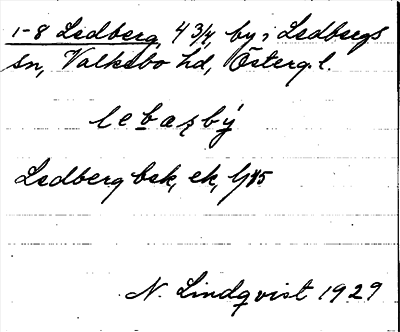 1-8 Ledberg, 4 3/4, by i Ledbergs
sn, Valkebo hd, Österg. l.
lebazbý
Ledberg bsk, ek, 1/485
N. Lindqvist 1929